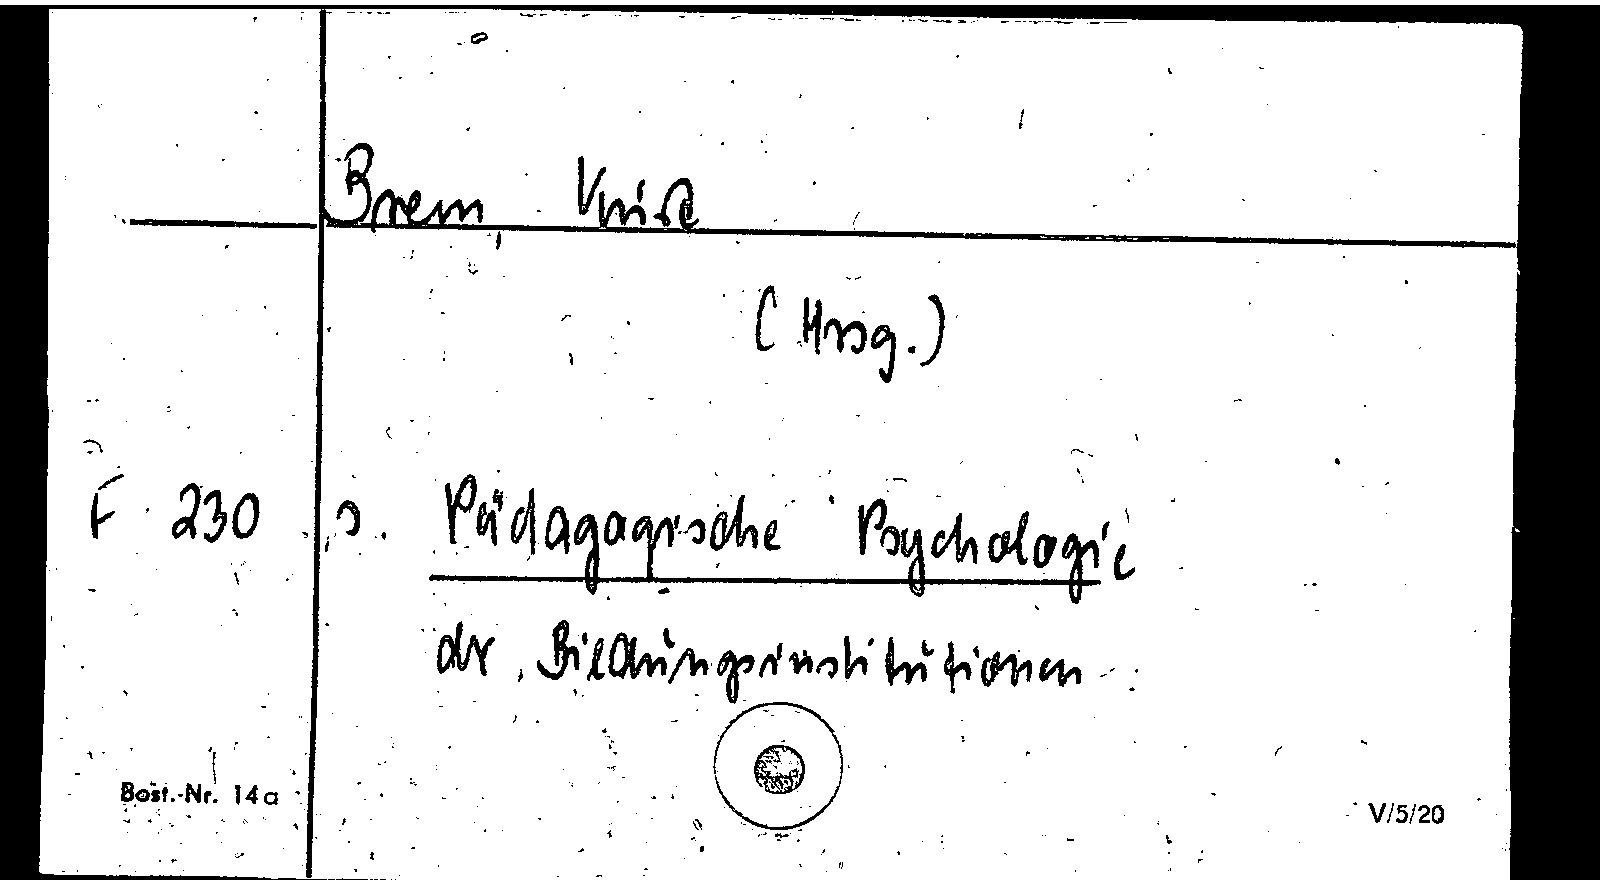 Brem
(Hrsg.)
F 230 s. Pädagogische Psychologie
der Bildungsinstitutionen
Best.-Nr. 14a
V/5/20